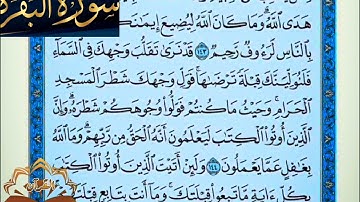 سورة البقرة
هَدَى ٱللَّهُ وَمَا كَانَ ٱللَّهُ لِيُضِيعَ إِيمَٰنَكُمْ
بِٱلنَّاسِ لَرَءُوفٌ رَّحِيمٌ ١٤٣ قَدْ نَرَىٰ تَقَلُّبَ وَجْهِكَ فِى ٱلسَّمَآءِ
فَلَنُوَلِّيَنَّكَ قِبْلَةً تَرْضَىٰهَا فَوَلِّ وَجْهَكَ شَطْرَ ٱلْمَسْجِدِ
ٱلْحَرَامِ وَحَيْثُ مَا كُنتُمْ فَوَلُّوا۟ وُجُوهَكُمْ شَطْرَهُۥ وَإِنَّ
ٱلَّذِينَ أُوتُوا۟ ٱلْكِتَٰبَ لَيَعْلَمُونَ أَنَّهُ ٱلْحَقُّ مِن رَّبِّهِمْ وَمَا ٱللَّهُ
بِغَٰفِلٍ عَمَّا يَعْمَلُونَ ١٤٤ وَلَئِنْ أَتَيْتَ ٱلَّذِينَ أُوتُوا۟ ٱلْكِتَٰبَ
بِكُلِّ ءَايَةٍ مَّا تَبِعُوا۟ قِبْلَتَكَ وَمَآ أَنتَ بِتَابِعٍ قِبْلَتَهُمْ